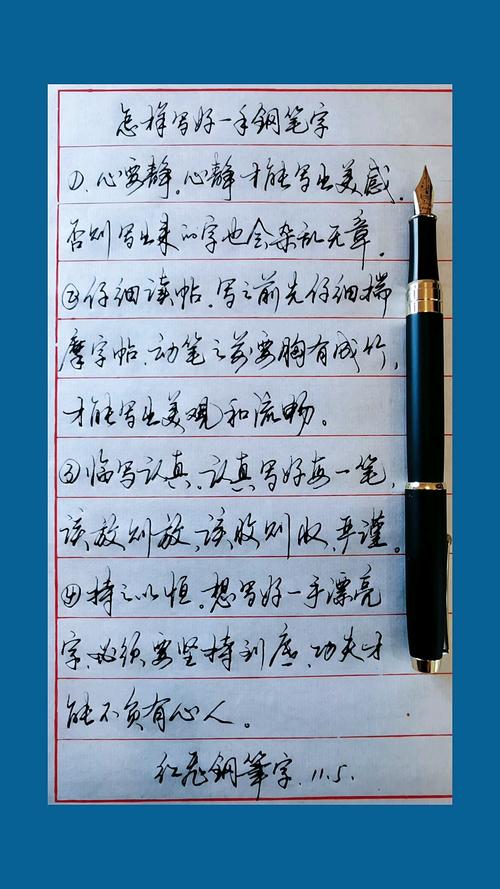 怎样写好一手钢笔字
①、心要静。心静才能写出美感。
否则写出来的字也会杂乱无章。
②仔细读帖。写之前先仔细揣
摩字帖、动笔之前要胸有成竹，
才能写出美观和流畅。
③临写认真。认真写好每一笔，
该放则放、该收则收、严谨。
④持之以恒。想写好一手漂亮
字、必须要坚持到底、功夫才
能不负有心人。
红飞钢筆字、11.5.